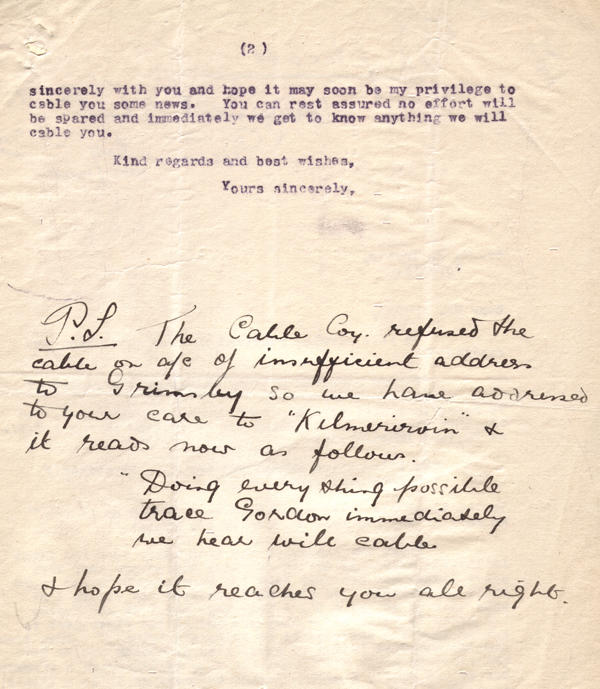 (2)
sincerely with you and hope it may soon be my privilege to
cable you some news. You can rest assured no effort will
be spared and immediately we get to know anything we will
cable you.
Kind regards and best wishes,
Yours sincerely,
P.S. The Cable Coy. refused the
cable on a/c of insufficient address
to Grimsby so we have addressed
to your care to "Kilmerirvin" &
it reads now as follows.
"Doing everything possible
trace Gordon immediately
we hear will cable
& hope it reaches you all right.